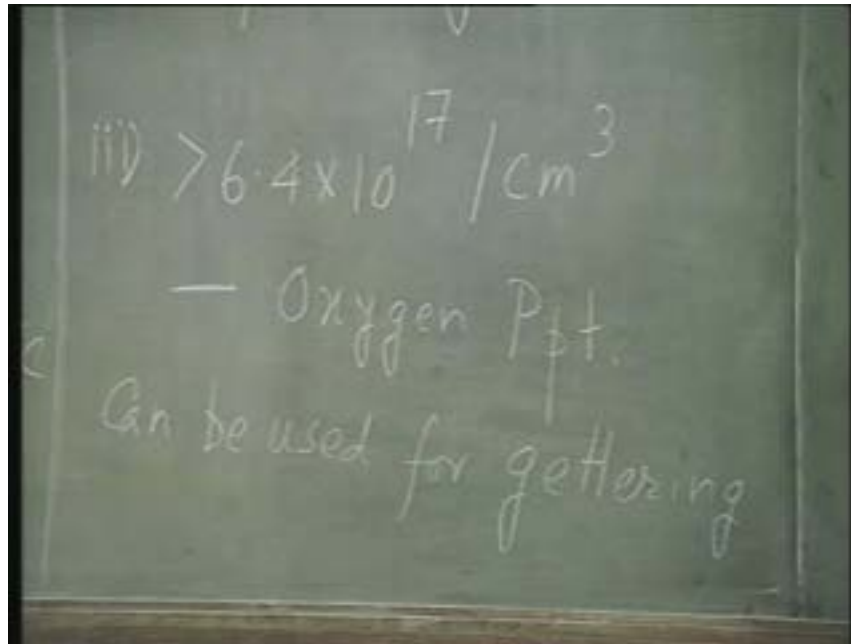 iii) >6.4x10^17 /cm^3
— Oxygen Ppt.
Can be used for gettering